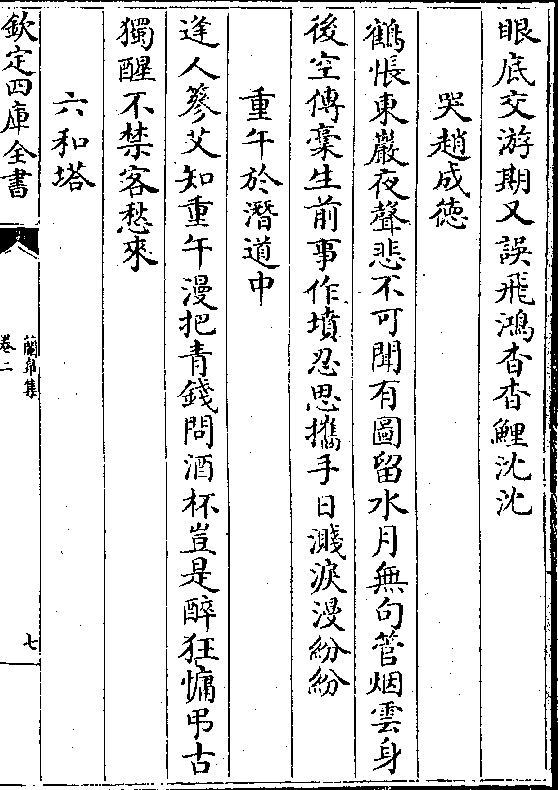 眼底交游期又誤飛鴻杳杳鯉沈沈
哭趙成徳
鶴悵東巖夜聲悲不可聞有圖留水月無句管烟雲身
後空傳稾生前事作墳忍思攜手日濺淚漫紛紛
重午於潛道中
逢人蔘艾知重午漫把青錢問酒杯豈是醉狂慵弔古
獨醒不禁客愁來
六和塔
欽定四庫全書
蘭皐集
卷二
七